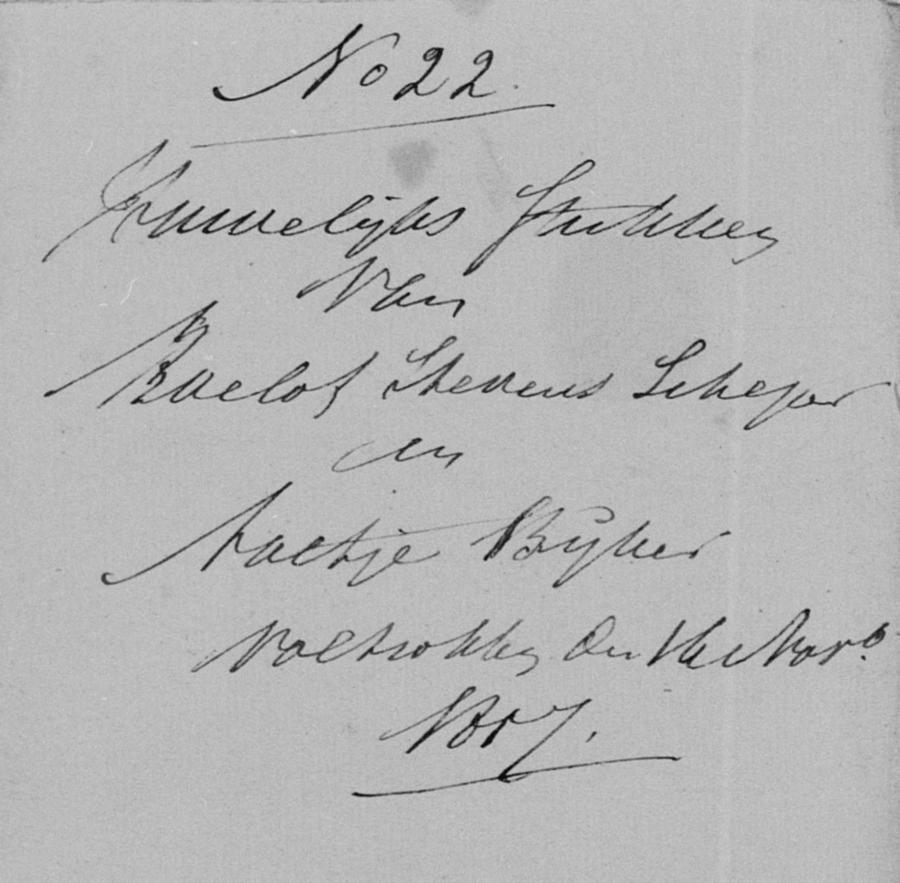 No 22.
Huwelijks Stukken
Van
Roelof Stevens Scheper
en
Aaltje Bijker
Voltrokken den